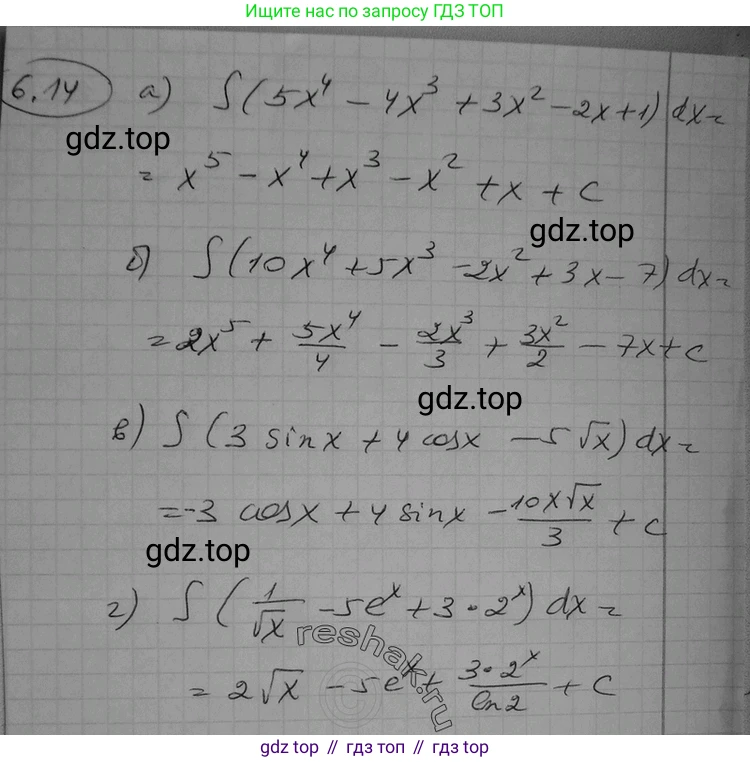 Ищите нас по запросу ГДЗ ТОП
6.14 а) ∫(5x⁴ - 4x³ + 3x² - 2x + 1) dx =
gdz.top
= x⁵ - x⁴ + x³ - x² + x + c
gdz.top
б) ∫(10x⁴ + 5x³ - 2x² + 3x - 7) dx =
= 2x⁵ + 5x⁴/4 - 2x³/3 + 3x²/2 - 7x + c
gdz.top
в) ∫(3 sinx + 4 cosx - 5√x) dx =
= -3 cosx + 4 sinx - 10x√x/3 + c
gdz.top
г) ∫(1/√x - 5eˣ + 3·2ˣ) dx =
reshak.ru
= 2√x - 5eˣ + 3·2ˣ/ln2 + c
gdz top // гдз топ // gdz.top